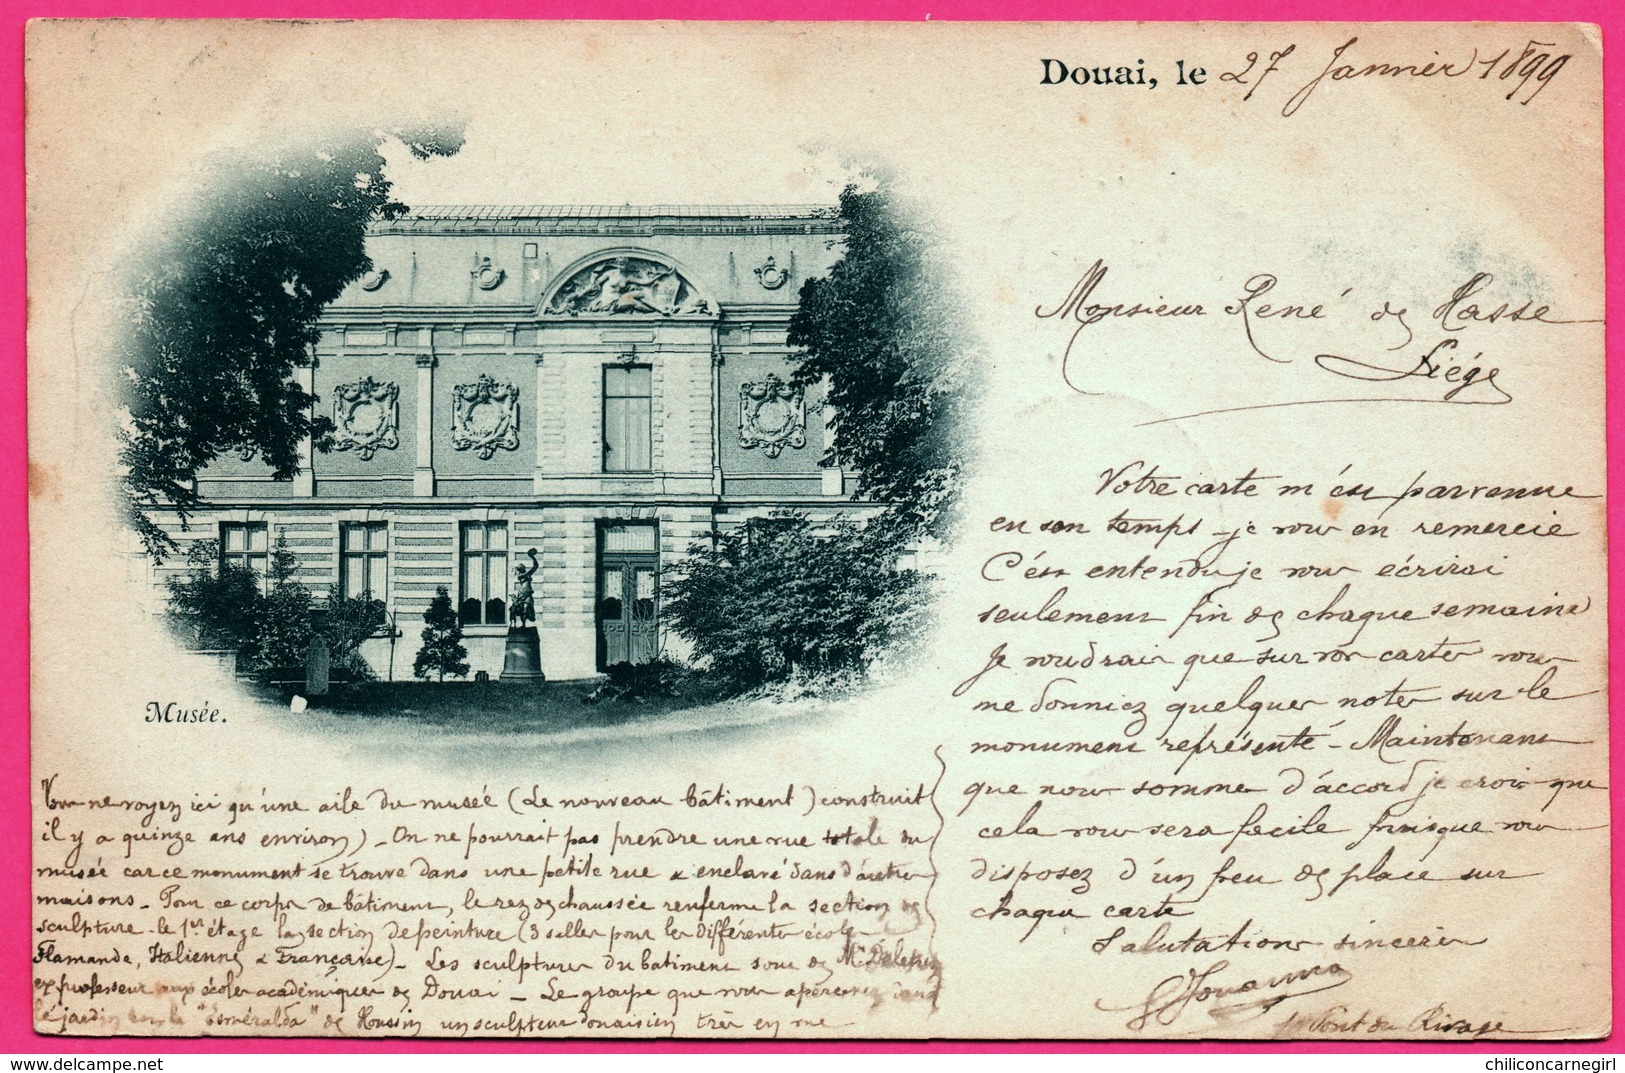 Douai, le 27 Janvier 1899
Monsieur René de Hasse
Liége
Votre carte m'est parvenue
en son temps - je vous en remercie
C'est entendu je vous écrirai
seulement fin de chaque semaine
Je voudrais que sur vos cartes vous
me donniez quelques notes sur le
monument représenté - Maintenant
que nous sommes d'accord je crois que
cela vous sera facile puisque vous
disposez d'un peu de place sur
chaque carte
Salutations sincères
Pont du Rivage
Musée.
Vous ne voyez ici qu'une aile du musée (Le nouveau bâtiment) construit
il y a quinze ans environ) - On ne pourrait pas prendre une vue totale du
musée car ce monument se trouve dans une petite rue & enclavé dans d'autres
maisons - Pour ce corps de bâtiment, le rez de chaussée renferme la section de
sculpture - le 1er étage la section de peinture (3 salles pour les différentes écoles
Flamande, Italienne & Française) - Les sculptures du batiment sont de Mr
ex professeur aux écoles académiques de Douai - Le groupe que vous apercevez dans
le jardin est la "Esméralda" de Houssin un sculpteur douaisien très en vue
chiliconcarnegirl